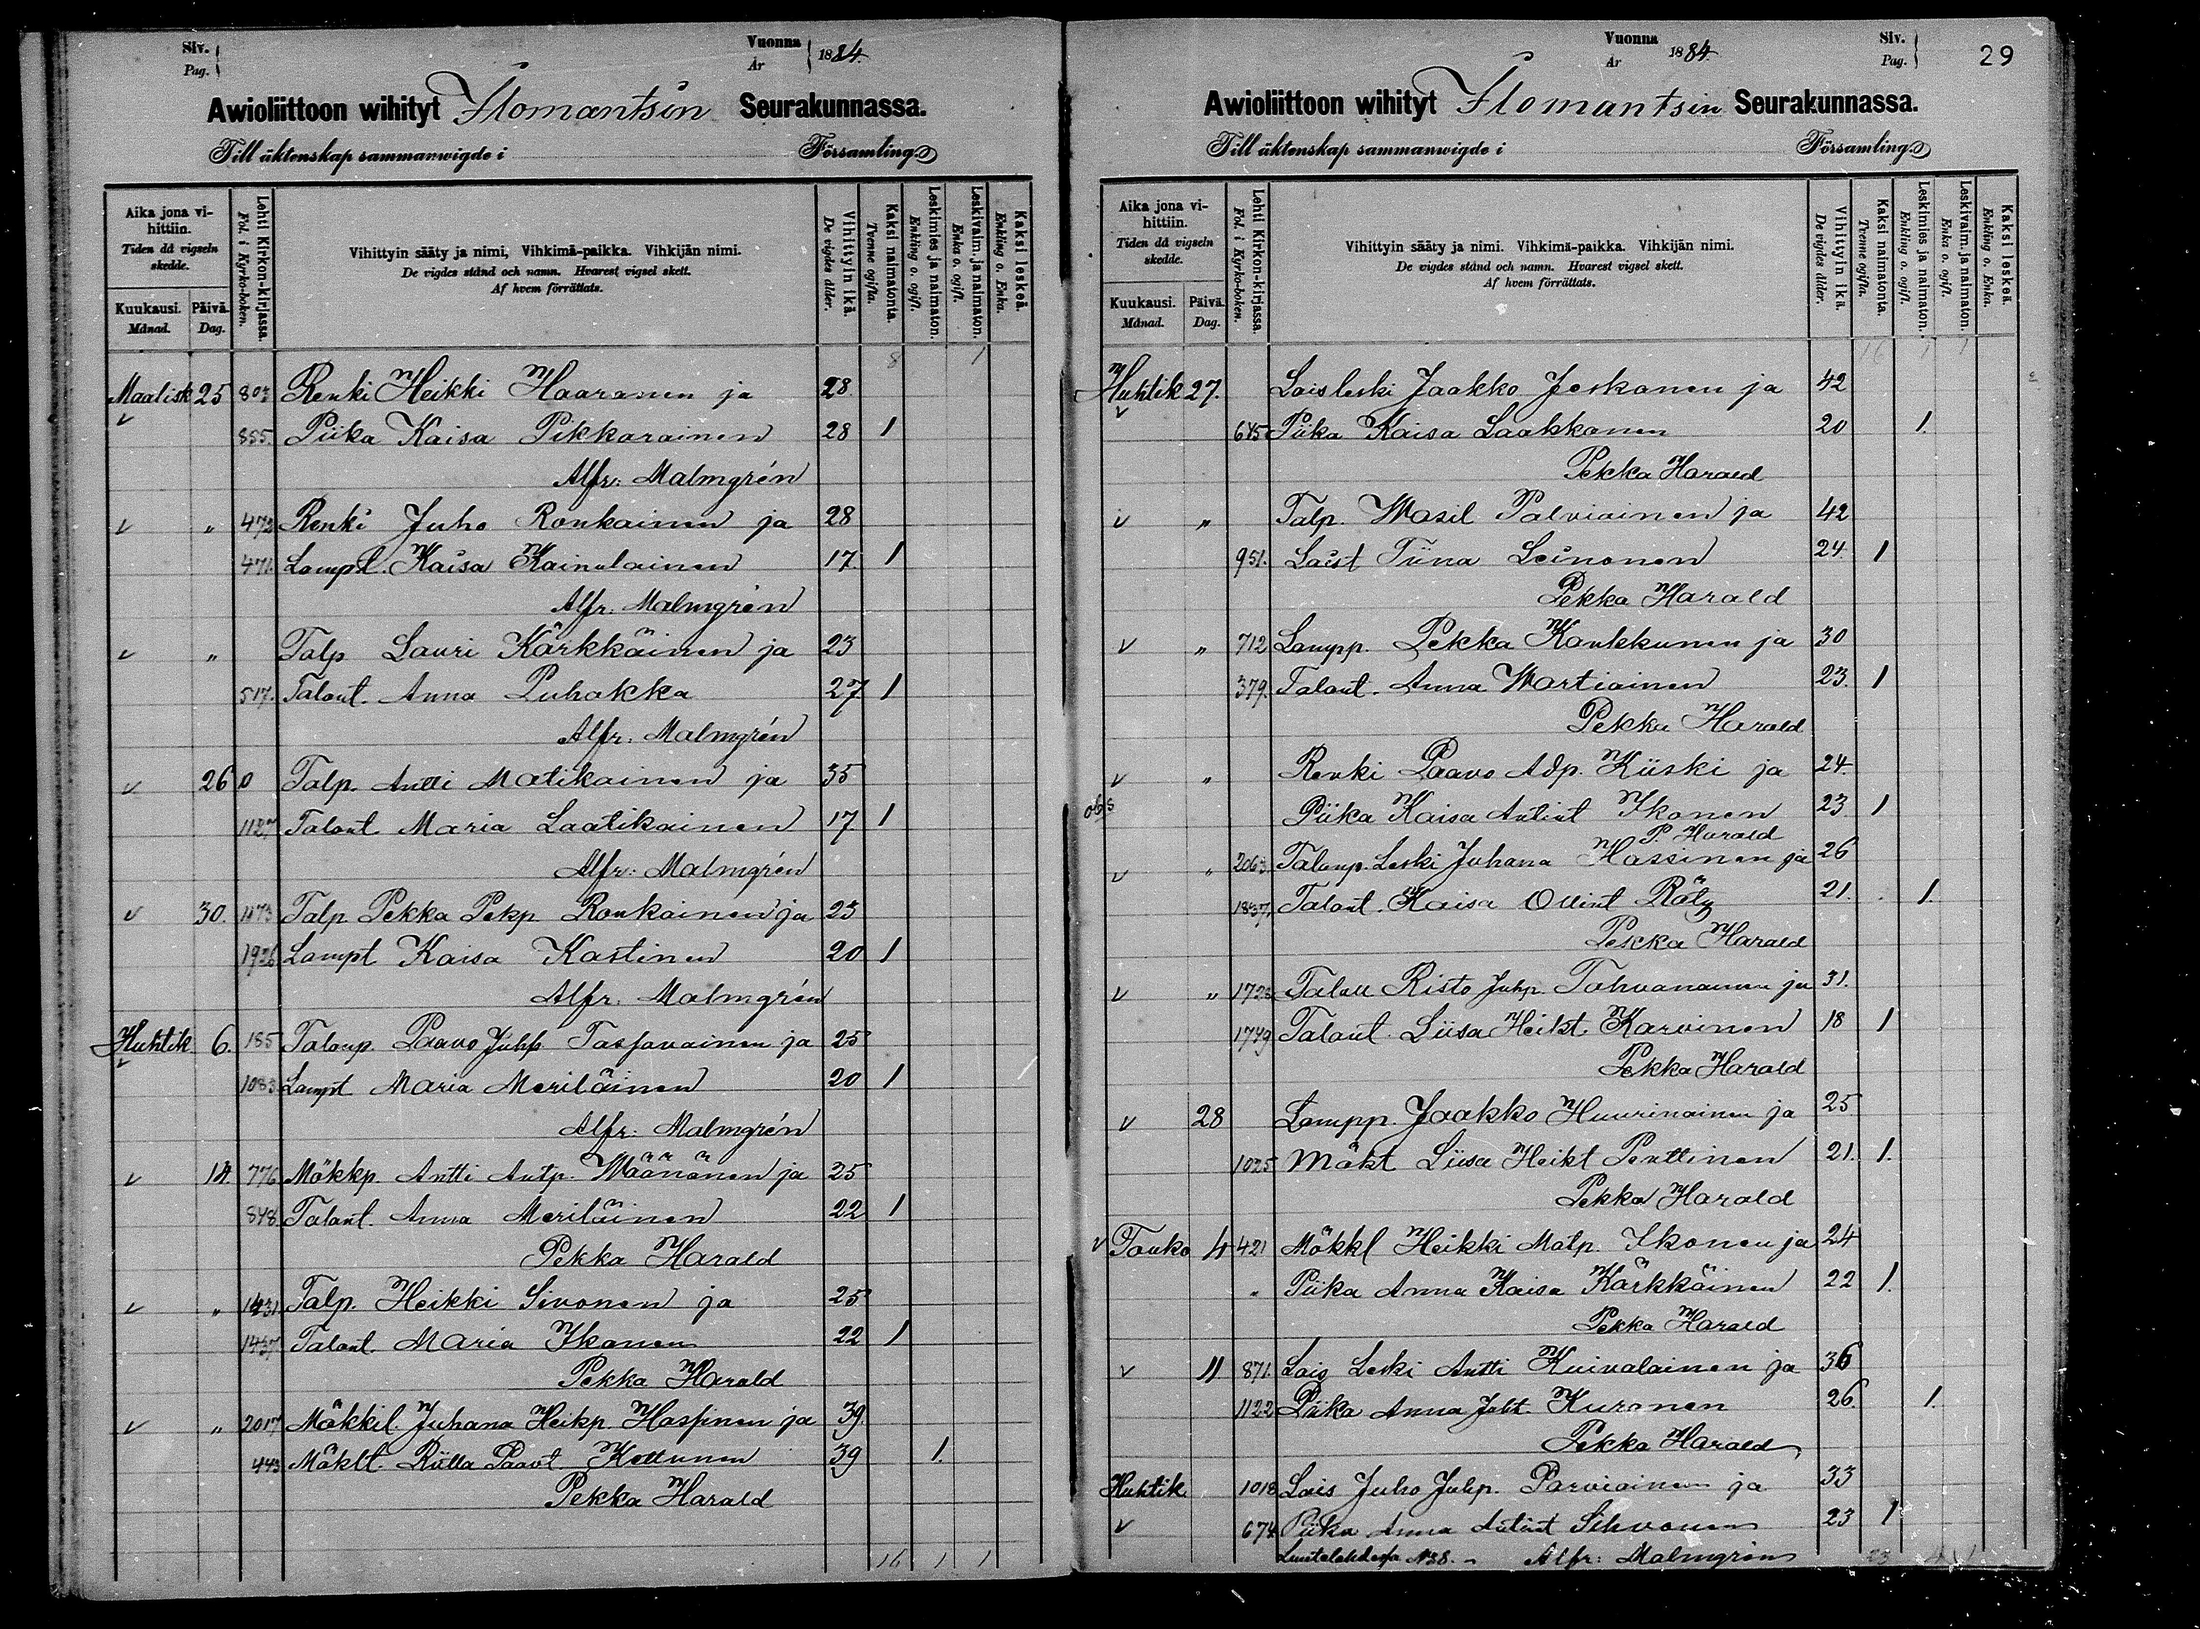 Siv.
Pag.
Vuonna
År
1884.
Awioliittoon wihityt Ilomantsin Seurakunnassa.
Till äktenskap sammanwigde i Församling.
Aika jona vihittiin.
Tiden då vigseln skedde.
Kuukausi.
Månad.
Päivä.
Dag.
Lehti Kirkon-kirjassa.
Fol. i Kyrko-boken.
Vihittyin sääty ja nimi, Vihkimä-paikka. Vihkijän nimi.
De vigdes stånd och namn. Hvarest vigsel skett.
Af hvem förrättats.
Vihittyin ikä.
De vigdes ålder.
Kaksi naimatonta.
Tvenne ogifta.
Leskimies ja naimaton.
Enkling o. ogift.
Leskivaim. ja naimaton.
Enka o. ogift.
Kaksi leskeä.
Enkling o. Enka.
8 1
Maalisk 25 803 Renki Heikki Haaranen ja 28
v 855. Piika Kaisa Pikkarainen 28 1
Alfr: Malmgrén
v " 472 Renki Juho Ronkainen ja 28
471. Lampt. Kaisa Kainulainen 17. 1
Alfr: Malmgrén
v " Talp Lauri Kärkkäinen ja 23
517. Talont. Anna Puhakka 27 1
Alfr: Malmgrén
v 26 0 Talp. Antti Matikainen ja 35
1127 Talont Maria Laatikainen 17 1
Alfr: Malmgrén
v 30. 1073 Talp Pekka Pekp Ronkainen ja 23
1926 Lampt Kaisa Kastinen 20 1
Alfr: Malmgrén
Huhtik 6. 185 Talonp. Paavo Juhp Tassavainen ja 25
v 1083 Lampt Maria Meriläinen 20 1
Alfr: Malmgrén
v 14 776 Mökkp. Antti Antp. Wäänänen ja 25
848 Talont. Anna Meriläinen 22 1
Pekka Harald
v " 1431 Talp. Heikki Sivonen ja 25
1437 Talont. Maria Ikonen 22 1
Pekka Harald
v " 2017 Mökkil. Juhana Heikp Hassinen ja 39
443 Möklt. Riitta Paavt. Kottunen 39 1.
Pekka Harald
16 1 1
Vuonna
År
1884.
Siv.
Pag.
29
Awioliittoon wihityt Ilomantsin Seurakunnassa.
Till äktenskap sammanwigde i Församling.
Aika jona vihittiin.
Tiden då vigseln skedde.
Kuukausi.
Månad.
Päivä.
Dag.
Lehti Kirkon-kirjassa.
Fol. i Kyrko-boken.
Vihittyin sääty ja nimi. Vihkimä-paikka. Vihkijän nimi.
De vigdes stånd och namn. Hvarest vigsel skett.
Af hvem förrättats.
Vihittyin ikä.
De vigdes ålder.
Kaksi naimatonta.
Tvenne ogifta.
Leskimies ja naimaton.
Enkling o. ogift.
Leskivaim. ja naimaton.
Enka o. ogift.
Kaksi leskeä.
Enkling o. Enka.
16 1 1
Huhtik 27. Loisleski Jaakko Jeskanen ja 42
v 645 Piika Kaisa Laakkonen 20 1.
Pekka Harald
v " Talp. Wasil Palviainen ja 42
951. Loist Tiina Leinonen 24. 1
Pekka Harald
v " 712 Lampp. Pekka Kaukkunen ja 30
379. Talont. Anna Wartiainen 23. 1
Pekka Harald
v " Renki Paavo Adp. Kiiski ja 24.
obs Piika Kaisa Antint Ikonen 23. 1
P. Harald
v " 2063 Talonp. Leski Juhana Hassinen ja 26
1837. Talont. Kaisa Ollint Räty 21. 1.
Pekka Harald
v " 1723 Talon Risto Juhp. Tahvanainen ja 31.
1749 Talont Liisa Heikt. Karvinen 18 1
Pekka Harald
v 28 Lampp. Jaakko Huurinainen ja 25
1025 Mökt Liisa Heikt Penttinen 21. 1.
Pekka Harald
v Touko 4 421 Mökkl Heikki Matp. Ikonen ja 24
" Piika Anna Kaisa Kärkkäinen 22 1.
Pekka Harald
v 11 871. Lois Leski Antti Kuivalainen ja 36
1122 Piika Anna Juht Kuronen 26. 1.
Pekka Harald
Huhtik 1018 Lois Juho Juhp. Parviainen ja 33
v 674 Piika Anna Antint Sihvonen 23 1
No 38. Alfr: Malmgrén 23 1